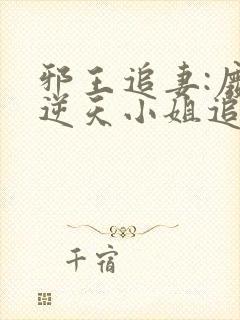 邪王追妻:废
逆天小姐追
千宿